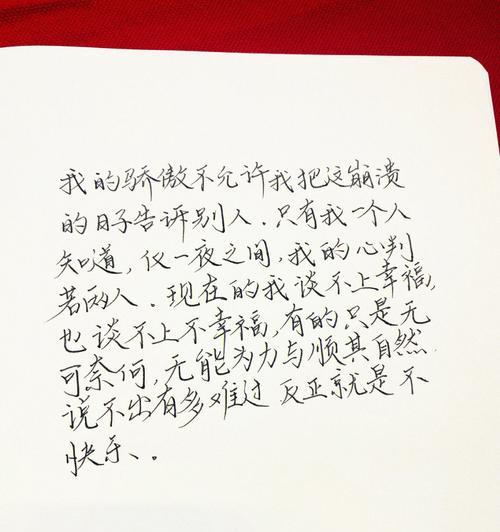 我的骄傲不允许我把这崩溃
的日子告诉别人.只有我一个人
知道,仅一夜之间,我的心判
若两人.现在的我谈不上幸福,
也谈不上不幸福,有的只是无
可奈何,无能为力与顺其自然.
说不出有多难过 反正就是不
快乐、。